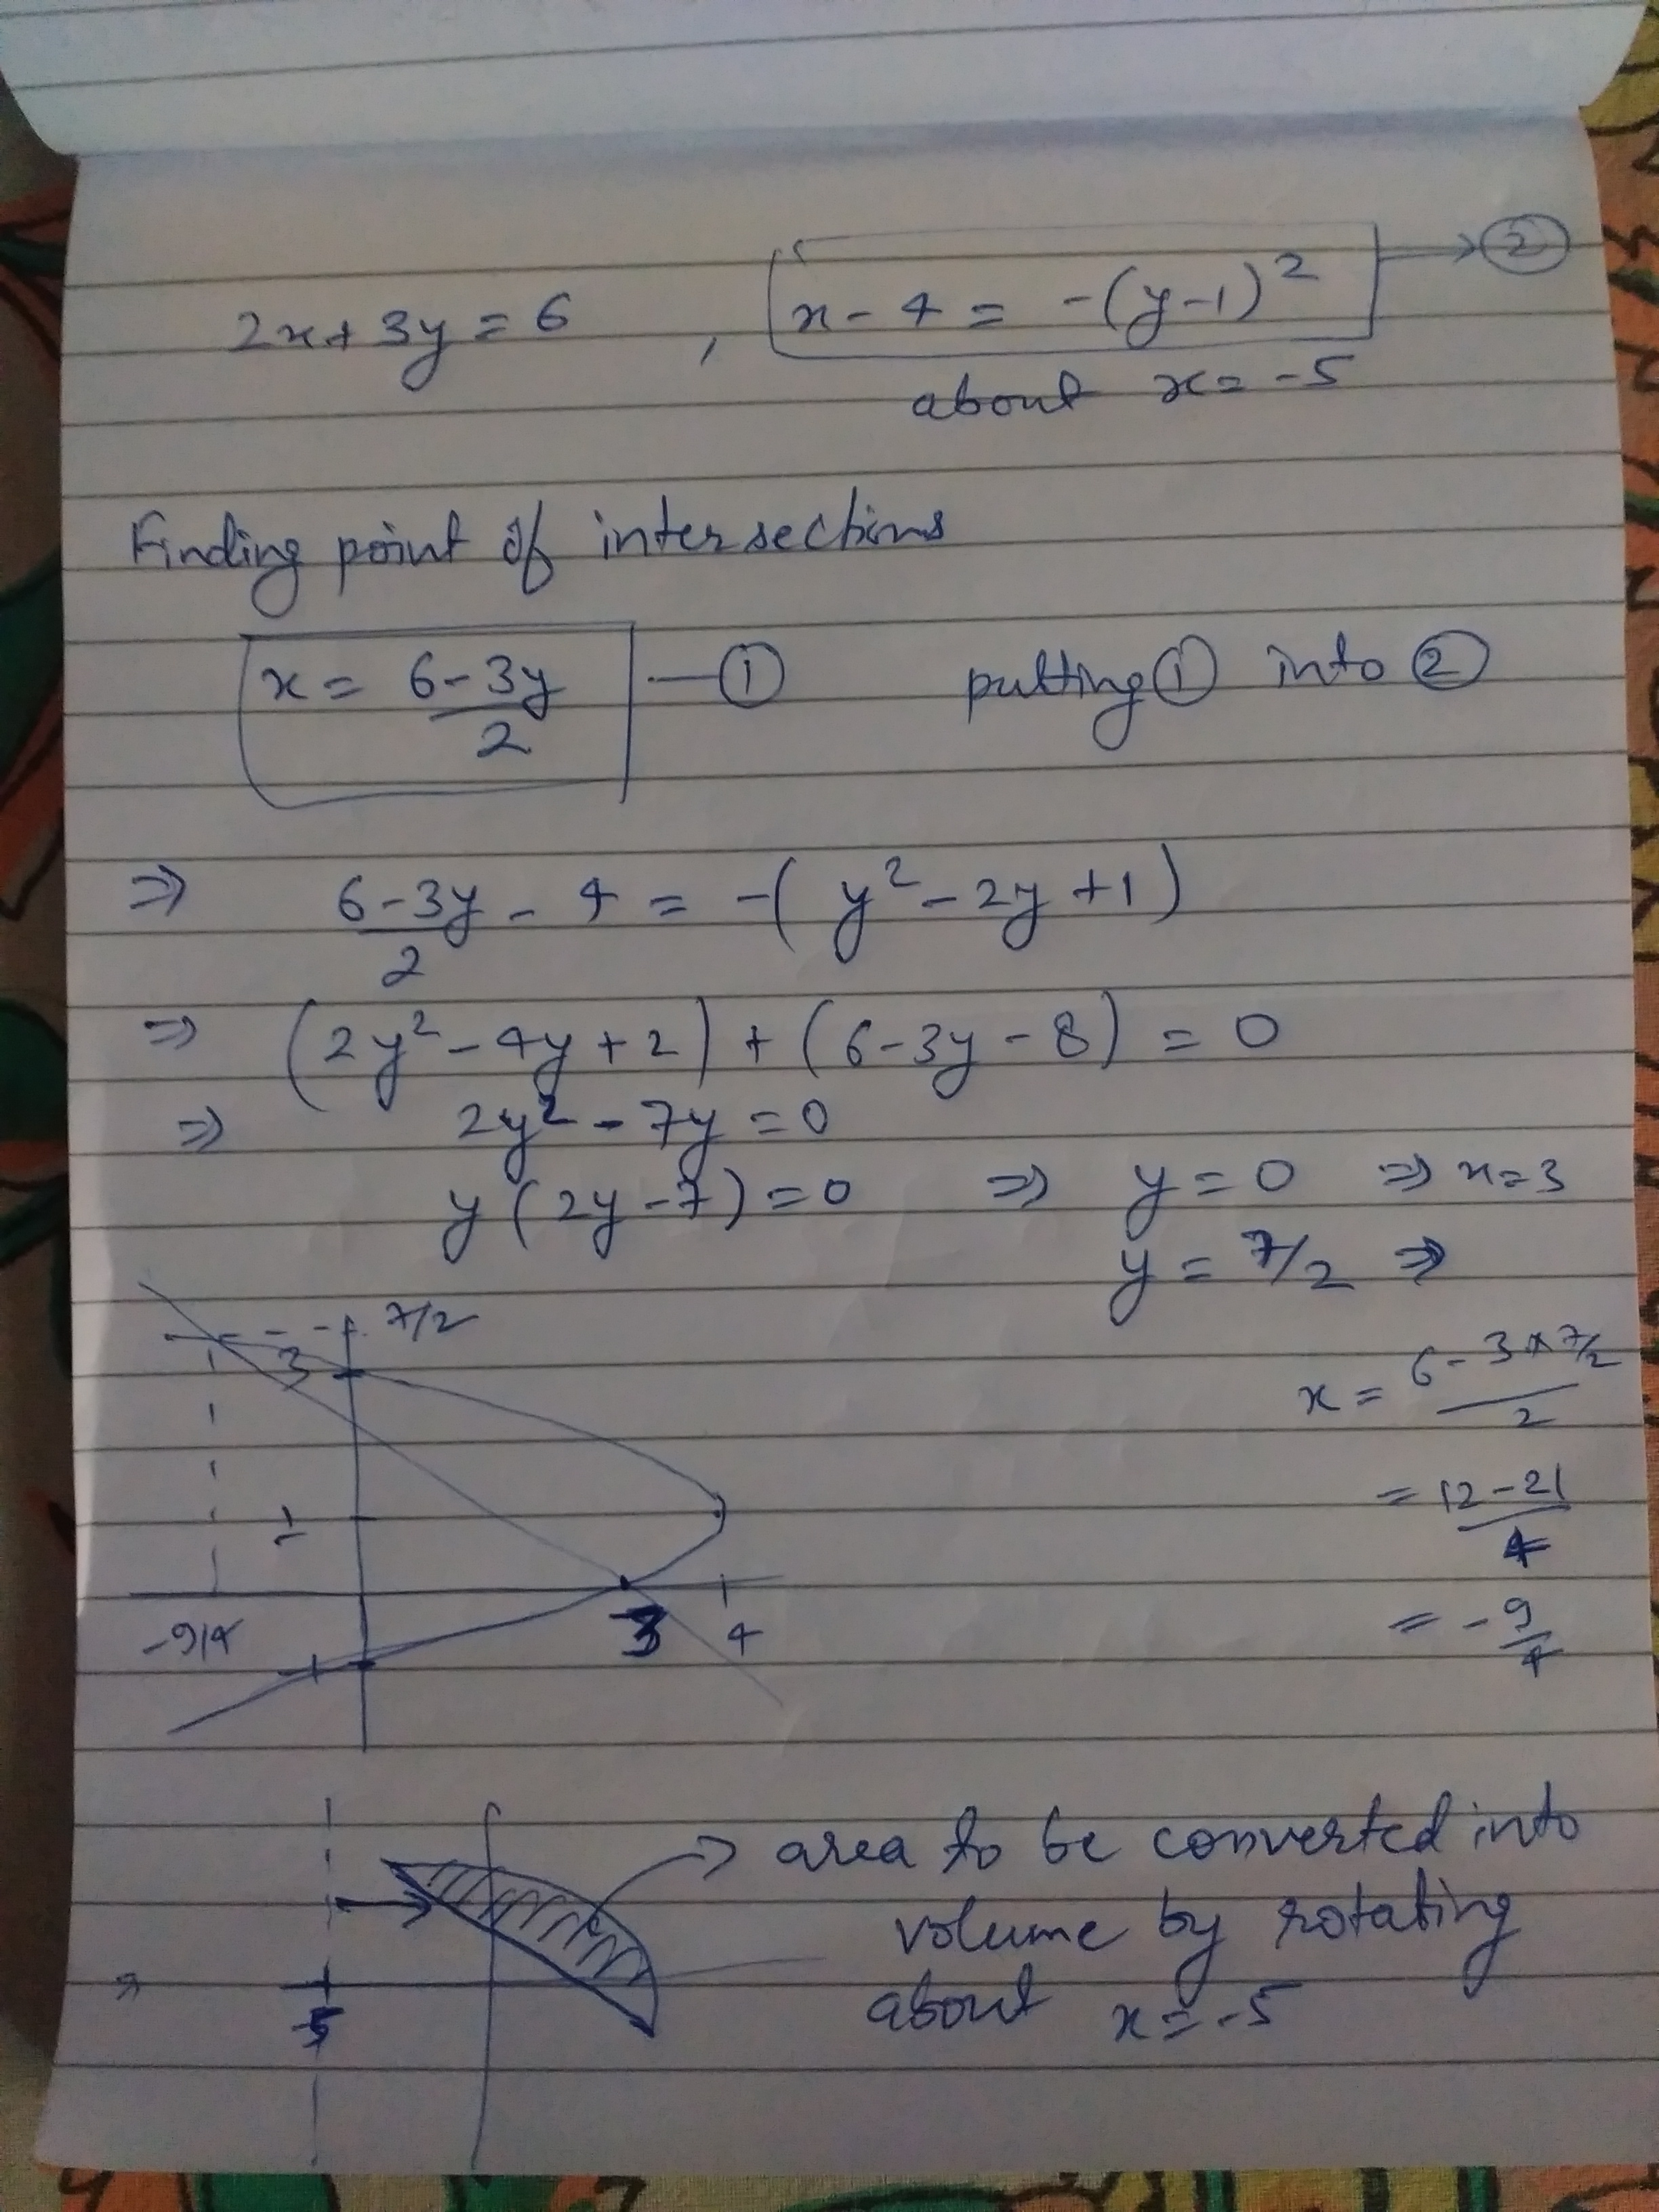 2x+3y=6 , x-4 = -(y-1)² → ②
about x=-5
Finding point of intersections
x = (6-3y)/2 — ① putting ① into ②
⇒ (6-3y)/2 - 4 = -(y²-2y+1)
⇒ (2y²-4y+2) + (6-3y-8) = 0
⇒ 2y²-7y=0
y(2y-7)=0 ⇒ y=0 ⇒ x=3
y=7/2 ⇒
x = (6-3×7/2)/2
= (12-21)/4
= -9/4
7/2
3
1
-9/4 3 4
→ area to be converted into
volume by rotating
about x=-5
⇒ -5